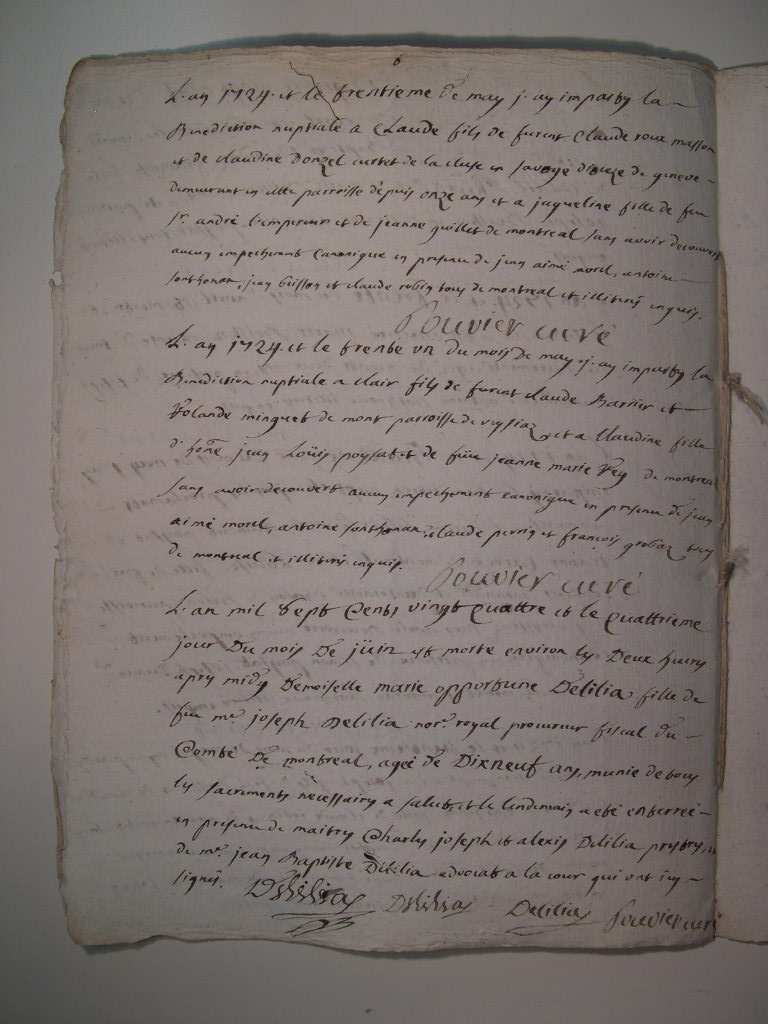 L'an 1724. et le trentieme de may j'ay imparty la
Benediction nuptiale a Claude fils de furent Claude roux masson
et de claudine donzel curtet de la cluse en savoye dioceze de geneve
demeurant en cette parroisse depuis onze ans et a jaqueline fille de feu
Sr. andré l'empereur et de jeanne guillet de montreal sans avoir decouvert
aucun empechement canonique en presence de jean aimé morel, antoine
sonthonax, jean buisson et claude robin tous de montreal et illiterés enquis.
Bouvier curé
L'an 1724. et le trente un du mois de may j'ay imparty la
Benediction nuptiale a clair fils de furent claude Barrier et
Yolande minguet de mont parroisse de veysiaz et a Claudine fille
d'hone. jean Loüis poysat et de feüe jeanne marie Vey de montreal
sans avoir decouvert aucun empechement canonique en presence de jean
aimé morel, antoine sonthonax, claude perrin et françois tous
de montreal et illiterés enquis.
Bouvier curé
L'an mil sept Cents vingt quattre et le quattrieme
jour Du mois De juin est morte environ les Deux heures
apres midy Demoiselle marie opportune Delilia fille de
feu me. joseph Delilia nore. royal procureur fiscal du
Comté De montreal, agée de Dixneuf ans, munie de tous
les sacrements nécessaires a salut, et le lendemain a eté enterrée
en presence de maitres Charles joseph et alexis Delilia prestres, et
de me. jean Baptiste Delilia advocat a la cour qui ont sous
signés. Delilia Delilia Delilia Bouvier curé